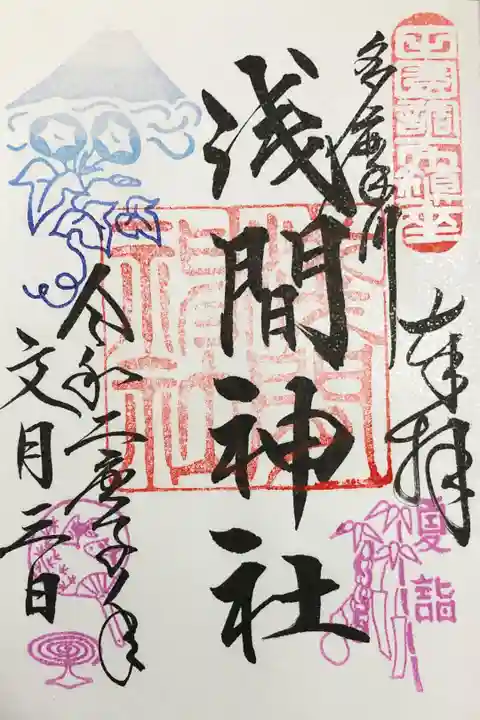 田園調布鎮座
奉拝
夏詣
多摩川
浅間神社
浅間
神社
令和二庚子ノ年
文月三日